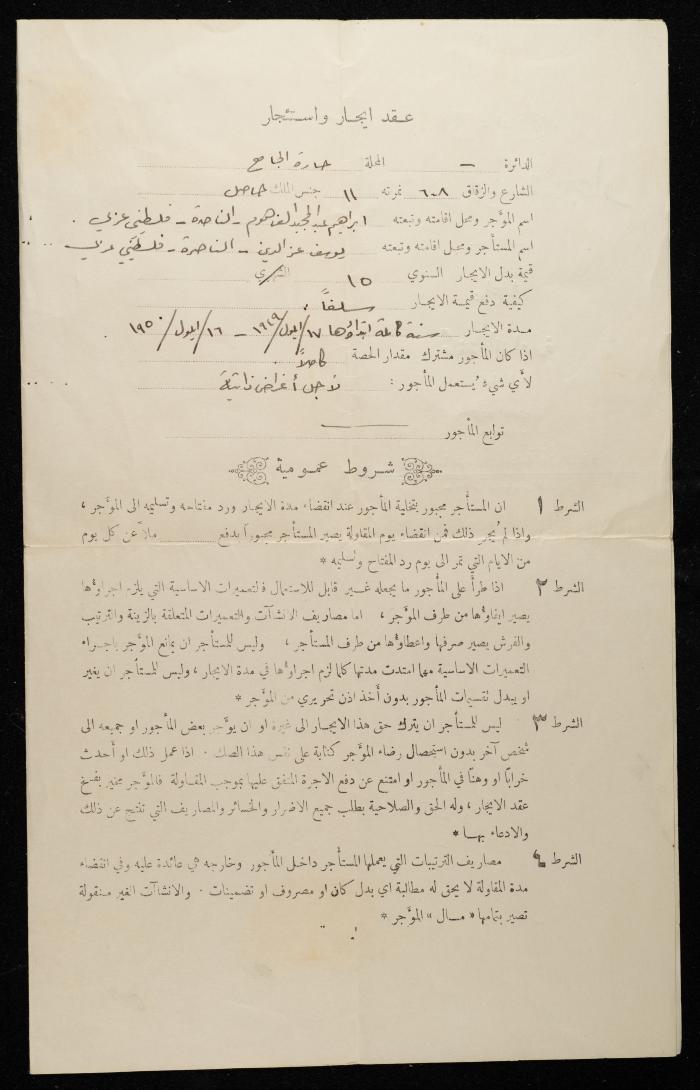 عقد ايجار واستئجار
الدائرة — المحلة حارة الجامع
الشارع والزقاق ٦٠٨ نمرته ١١ جنس الملك حاصل
اسم المؤجر ومحل اقامته وتبعته ابراهيم عبد المجيد الفاهوم - الناصرة - فلسطيني عربي
اسم المستأجر ومحل اقامته وتبعته يوسف عز الدين - الناصرة - فلسطيني عربي
قيمة بدل الايجار السنوي ١٥ الشهري
كيفية دفع قيمة الايجار سلفاً
مدة الايجار سنة كاملة ابتداؤها ١٧/ايلول/١٩٤٩ - ١٦/ايلول/١٩٥٠
اذا كان المأجور مشترك مقدار الحصة كاملاً
لأي شيءٍ يُستعمل المأجور : لاجل أغراض ذاتية
توابع المأجور —
شروط عمومية
الشرط ١ ان المستأجر مجبور بتخلية المأجور عند انقضاء مدة الايجار ورد مفتاحه وتسليمه الى المؤجر ،
واذا لم يُجرِ ذلك فمن انقضاء يوم المقاولة يصير المستأجر مجبوراً بدفع ملاً عن كل يوم
من الايام التي تمر الى يوم رد المفتاح وتسليمه *
الشرط ٢ اذا طرأ على المأجور ما يجعله غير قابل للاستعمال فالتعميرات الاساسية التي يلزم اجراؤها
يصير ايفاؤها من طرف المؤجر ، اما مصاريف الانشآت والتعميرات المتعلقة بالزينة والترتيب
والفرش يصير صرفها واعطاؤها من طرف المستأجر ، وليس للمستأجر ان يمانع المؤجر باجراء
التعميرات الاساسية مهما امتدت مدتها كلما لزم اجراؤها في مدة الايجار ، وليس للمستأجر ان يغير
او يبدل تقسيمات المأجور بدون أخذ اذن تحريري من المؤجر *
الشرط ٣ ليس للمستأجر ان يترك حق هذا الايجار الى غيره او ان يؤجر بعض المأجور او جميعه الى
شخص آخر بدون استحصال رضاء المؤجر كتابة على نفس هذا الصك . اذا عمل ذلك او أحدث
خرابًا او وهنًا في المأجور او امتنع عن دفع الاجرة المتفق عليها بموجب المقاولة فالمؤجر مخير بفسخ
عقد الايجار ، وله الحق والصلاحية بطلب جميع الاضرار والخسائر والمصاريف التي تنتج عن ذلك
والادعاء بها *
الشرط ٤ مصاريف الترتيبات التي يعملها المستأجر داخل المأجور وخارجه هي عائدة عليه وفي انقضاء
مدة المقاولة لا يحق له مطالبة اي بدل كان او مصروف او تضمينات . والانشآت الغير منقولة
تصير بتمامها « مال » المؤجر *